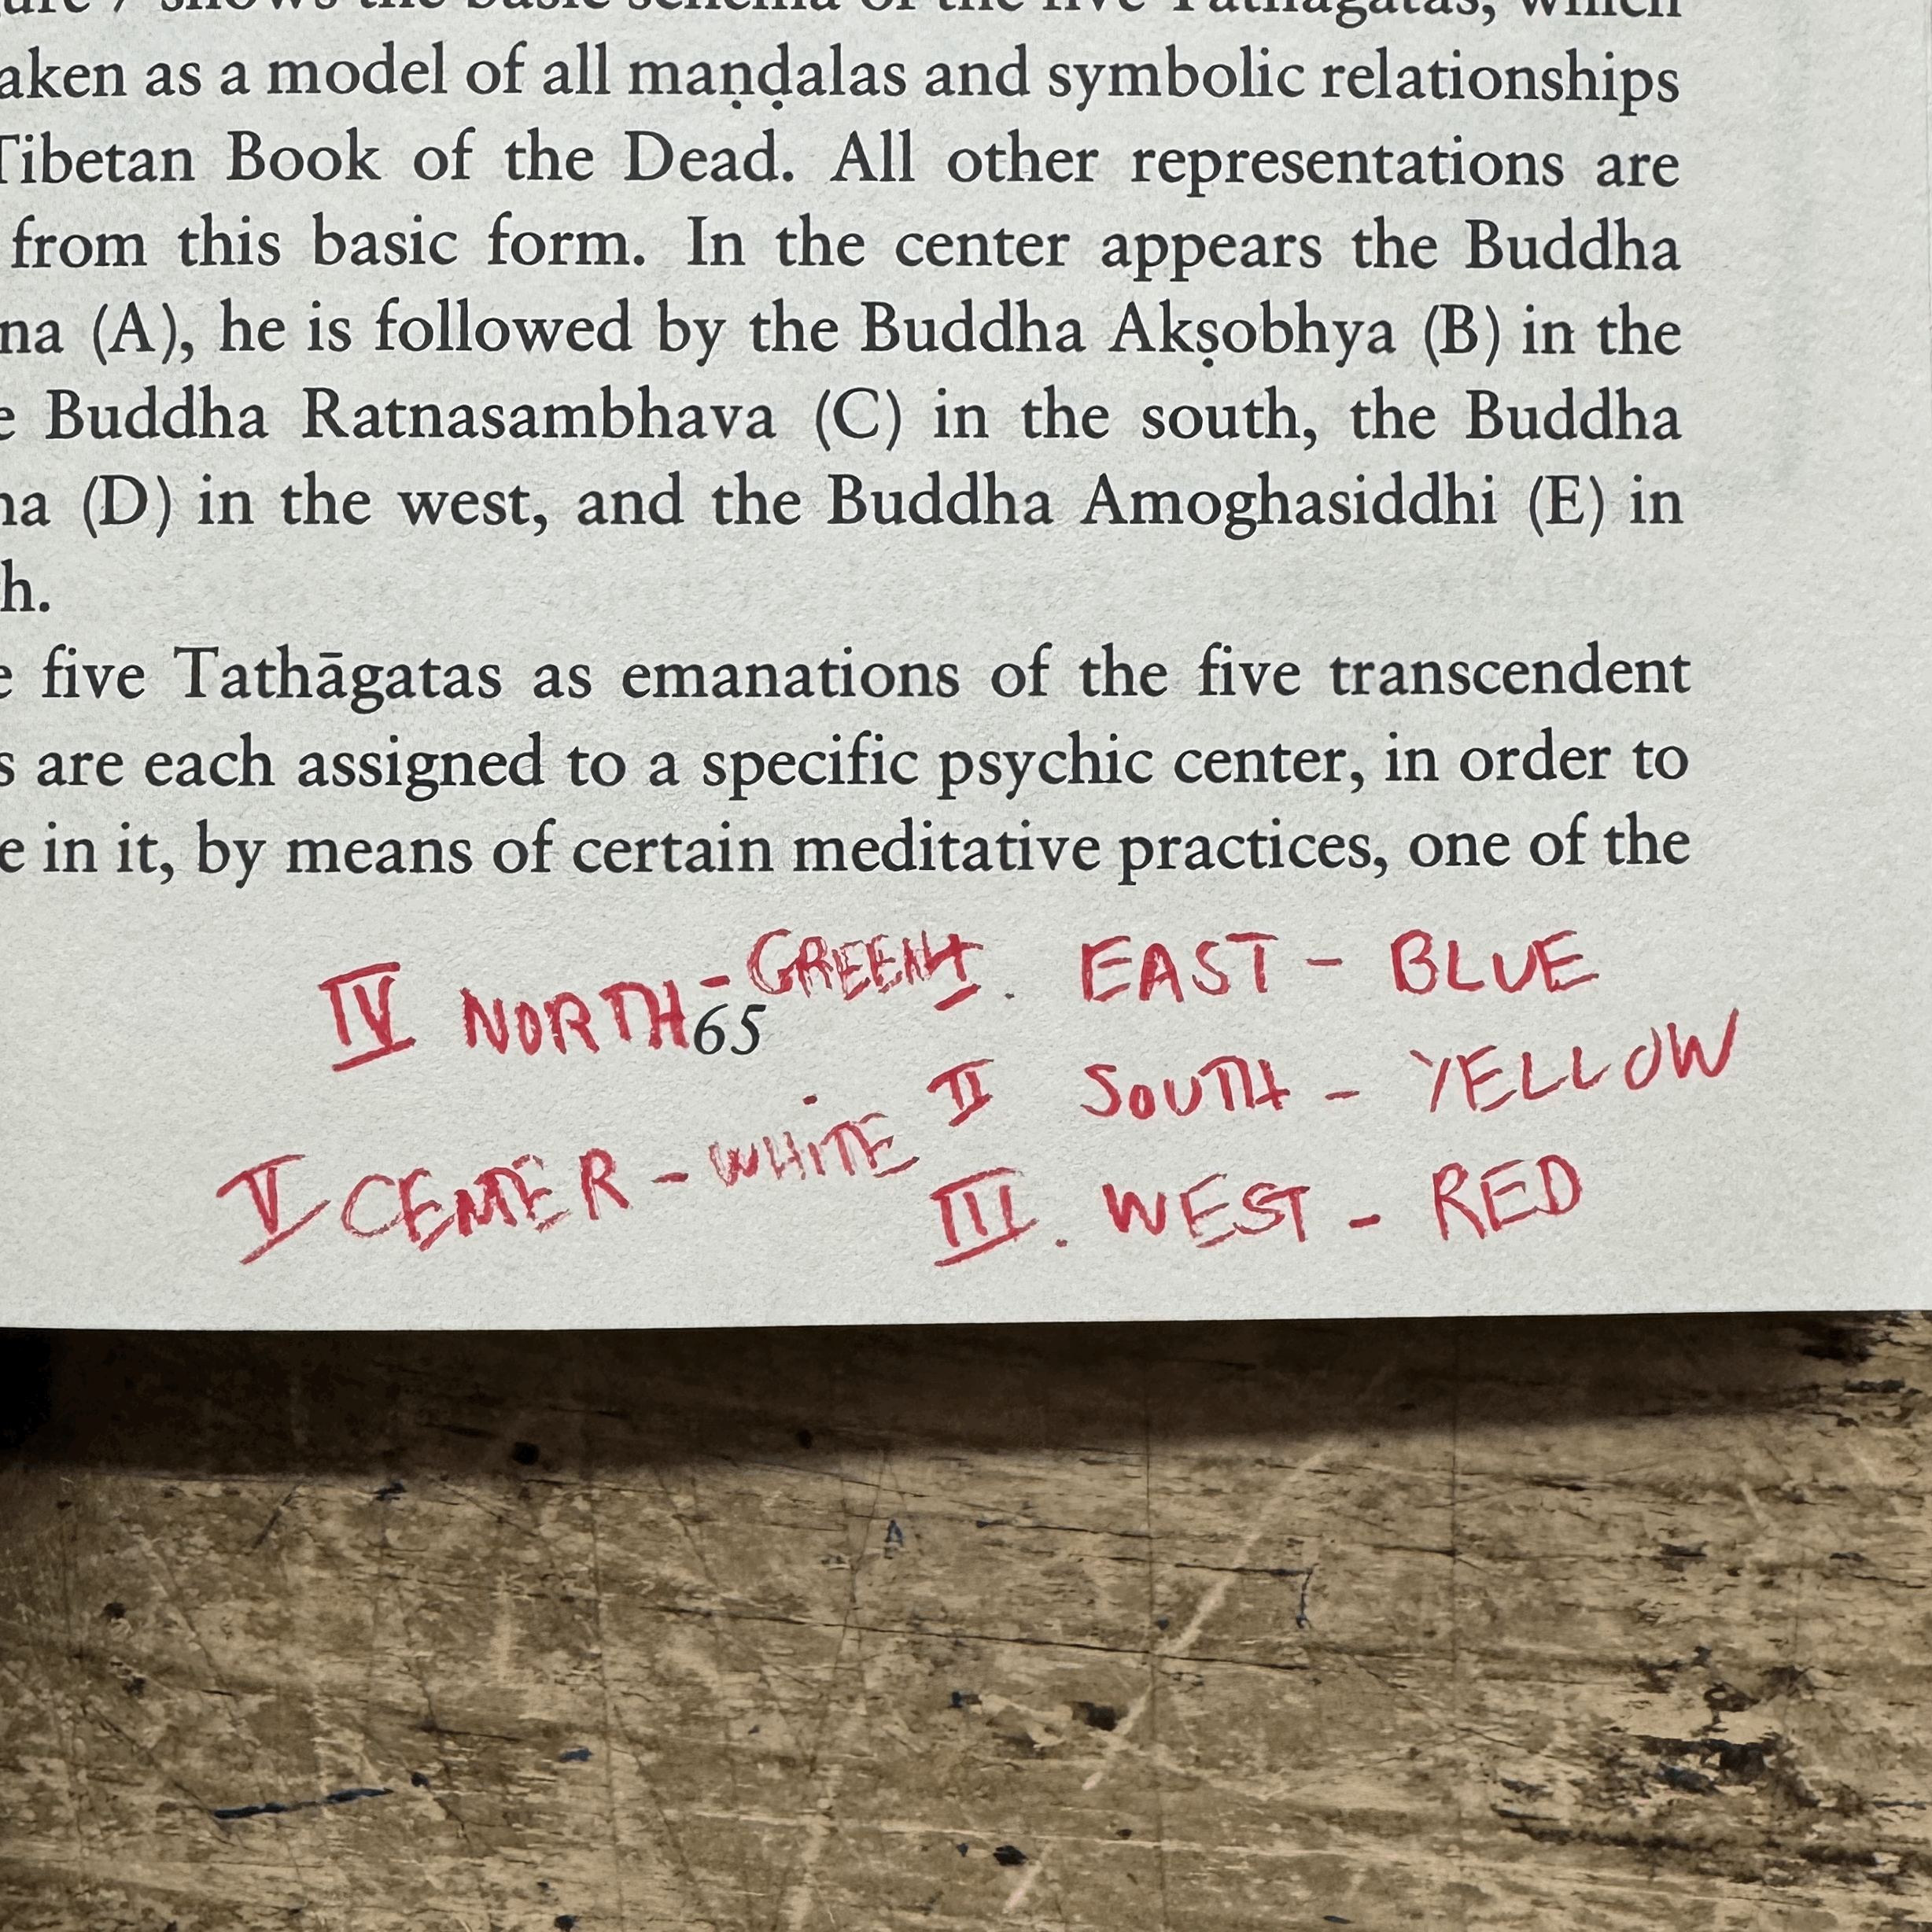 shows the basic schema of the five Tathāgatas, which
aken as a model of all maṇḍalas and symbolic relationships
Tibetan Book of the Dead. All other representations are
from this basic form. In the center appears the Buddha
na (A), he is followed by the Buddha Akṣobhya (B) in the
e Buddha Ratnasambhava (C) in the south, the Buddha
ha (D) in the west, and the Buddha Amoghasiddhi (E) in
h.
e five Tathāgatas as emanations of the five transcendent
s are each assigned to a specific psychic center, in order to
e in it, by means of certain meditative practices, one of the
I. EAST - BLUE
IV NORTH - GREEN
65
II SOUTH - YELLOW
V CENTER - WHITE
III. WEST - RED